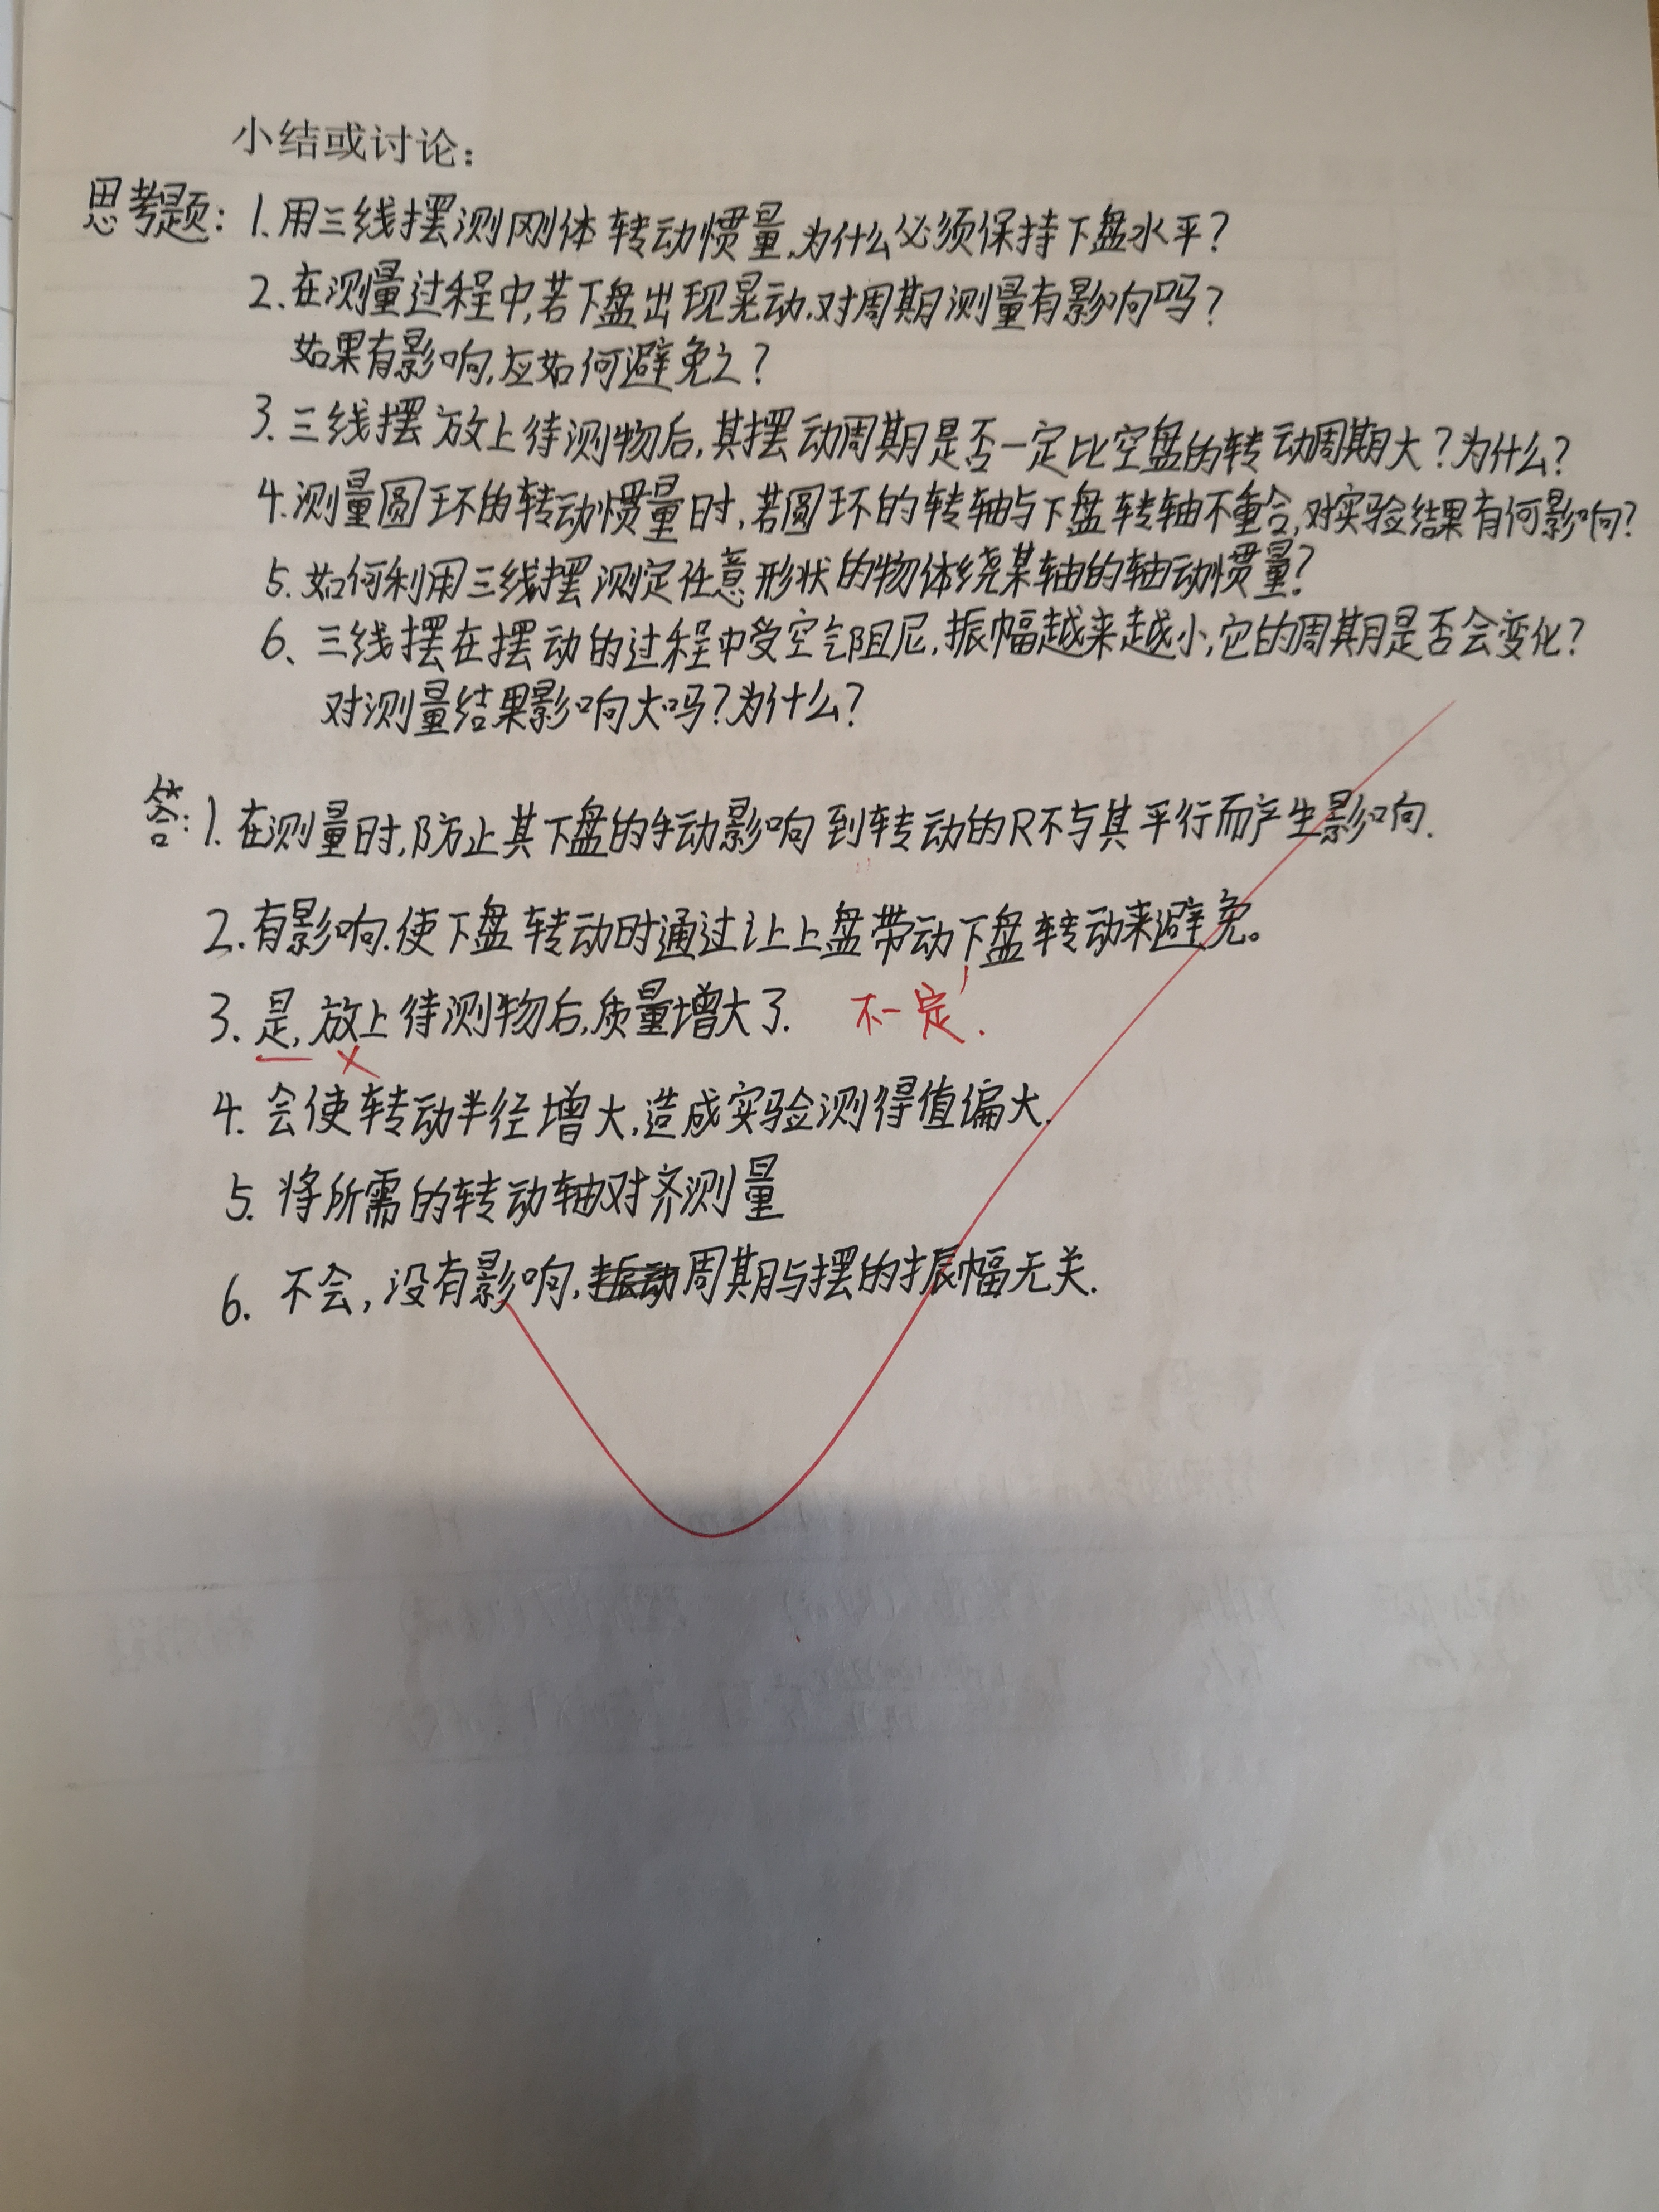 小结或讨论：
思考题：1.用三线摆测刚体转动惯量,为什么必须保持下盘水平？
2.在测量过程中,若下盘出现晃动,对周期测量有影响吗？
如果有影响,应如何避免之？
3.三线摆放上待测物后,其摆动周期是否一定比空盘的转动周期大？为什么？
4.测量圆环的转动惯量时,若圆环的转轴与下盘转轴不重合,对实验结果有何影响？
5.如何利用三线摆测定任意形状的物体绕某轴的轴动惯量？
6、三线摆在摆动的过程中受空气阻尼,振幅越来越小,它的周期是否会变化？
对测量结果影响大吗？为什么？
答：1.在测量时,防止其下盘的手动影响到转动的R不与其平行而产生影响.
2.有影响.使下盘转动时通过让上盘带动下盘转动来避免。
3.是,放上待测物后,质量增大了. 不一定.
4.会使转动半径增大,造成实验测得值偏大.
5.将所需的转动轴对齐测量
6.不会,没有影响,振动周期与摆的振幅无关.